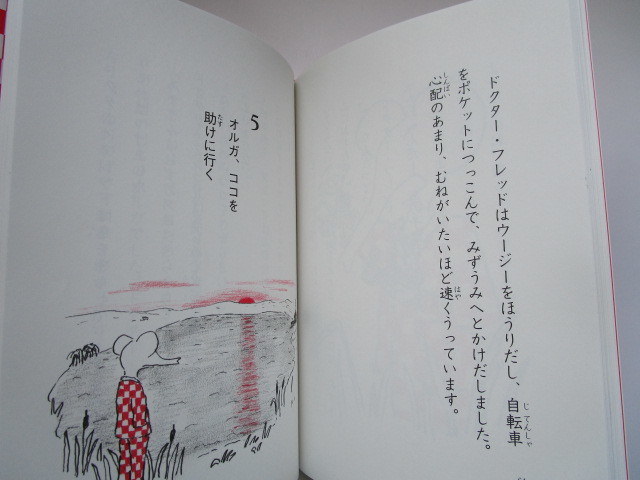 ドクター・フレッドはウージーをほうりだし、自転車
をポケットにつっこんで、みずうみへとかけだしました。
心配のあまり、むねがいたいほど速くうっています。
5
オルガ、ココを
助けに行く